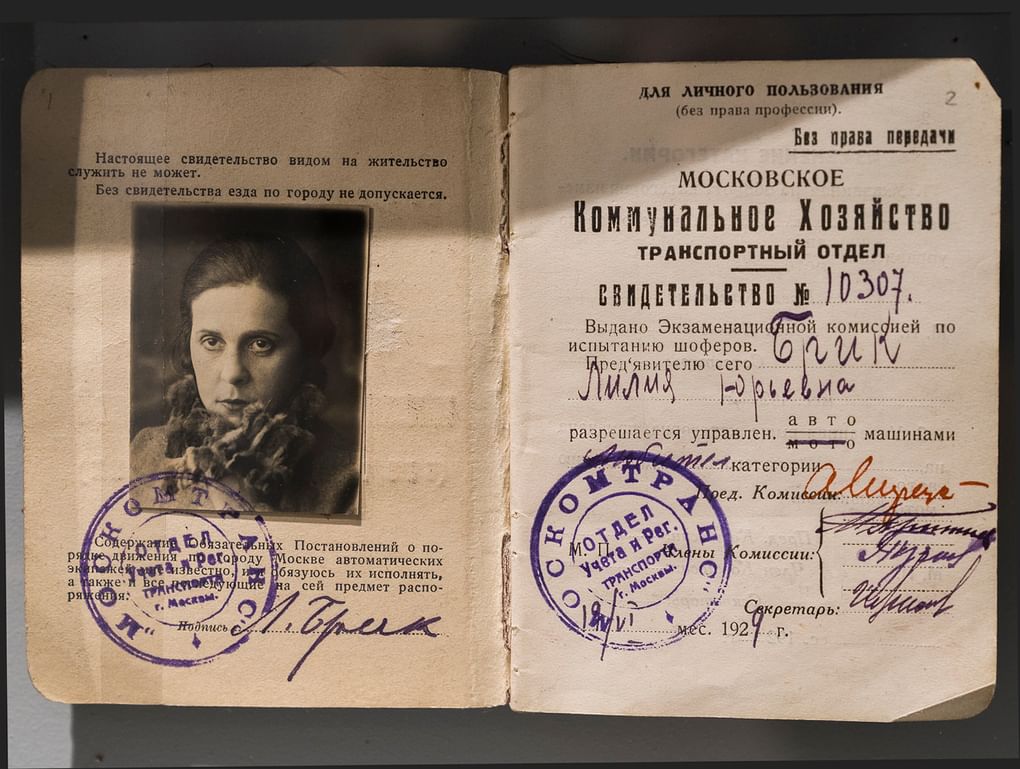 1
Настоящее свидетельство видом на жительство
служить не может.
Без свидетельства езда по городу не допускается.
Содержание обязательных Постановлений о по-
рядке движения по городу Москве автоматических
экипажей известно, и обязуюсь их исполнять,
а также и все последующие на сей предмет распо-
ряжения.
Подпись Л. Брик
"МОСКОМТРАНС"
ОТДЕЛ
Учета и Рег.
ТРАНСПОРТА
г. Москвы.
2
ДЛЯ ЛИЧНОГО ПОЛЬЗОВАНИЯ
(без права профессии).
Без права передачи
МОСКОВСКОЕ
Коммунальное Хозяйство
ТРАНСПОРТНЫЙ ОТДЕЛ
СВИДЕТЕЛЬСТВО № 10307.
Выдано Экзаменационной комиссией по
испытанию шоферов.
Пред'явителю сего Брик
Лилия Юрьевна
разрешается управлен. авто мото машинами
любител категории
Пред. Комиссии:
М. П. Члены Комиссии:
Секретарь:
19/VI мес. 1929 г.
"МОСКОМТРАНС"
ОТДЕЛ
Учета и Рег.
ТРАНСПОРТА
г. Москвы.